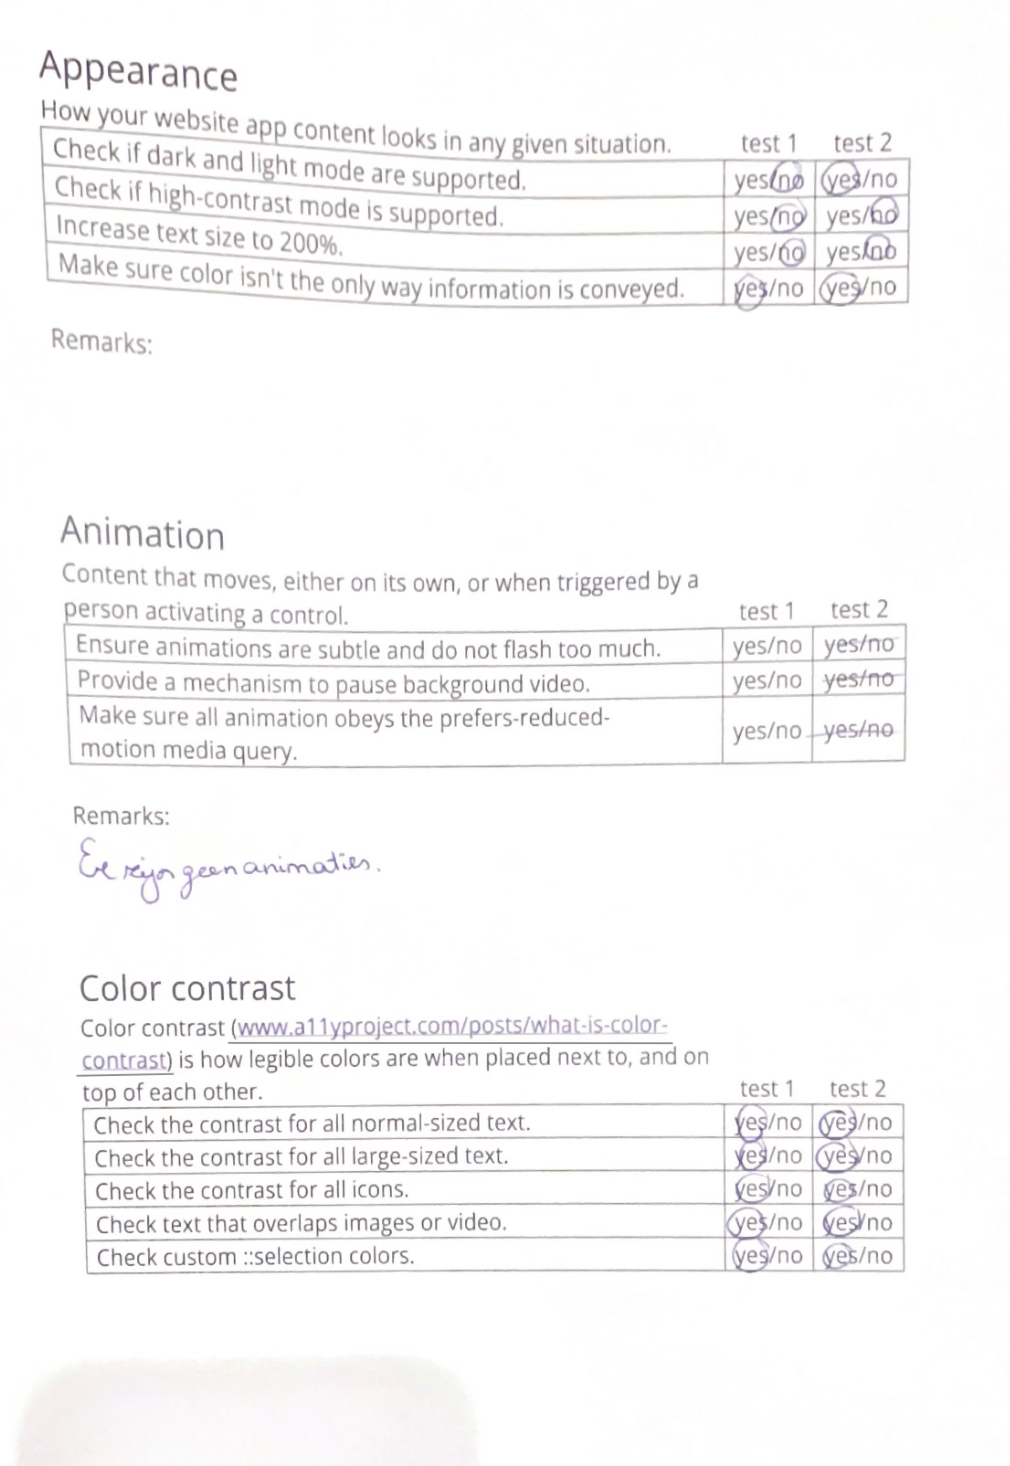 Appearance
How your website app content looks in any given situation. test 1 test 2
Check if dark and light mode are supported. yes/no yes/no
Check if high-contrast mode is supported. yes/no yes/no
Increase text size to 200%. yes/no yes/no
Make sure color isn't the only way information is conveyed. yes/no yes/no
Remarks:
Animation
Content that moves, either on its own, or when triggered by a
person activating a control. test 1 test 2
Ensure animations are subtle and do not flash too much. yes/no yes/no
Provide a mechanism to pause background video. yes/no yes/no
Make sure all animation obeys the prefers-reduced-
motion media query. yes/no yes/no
Remarks:
Er zijn geen animaties.
Color contrast
Color contrast (www.a11yproject.com/posts/what-is-color-
contrast) is how legible colors are when placed next to, and on
top of each other. test 1 test 2
Check the contrast for all normal-sized text. yes/no yes/no
Check the contrast for all large-sized text. yes/no yes/no
Check the contrast for all icons. yes/no yes/no
Check text that overlaps images or video. yes/no yes/no
Check custom ::selection colors. yes/no yes/no